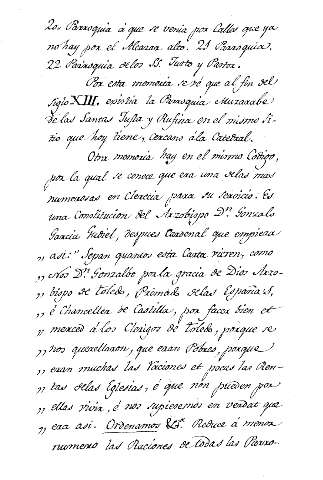 20. Parroquia á que se venia por Calles que ya
no hay por el Alcazar alto. 21 Parroquia.
22 Parroquia de los SS. Justo y Pastor.
Por esta memoria se vé que al fin del
siglo XIII. existia la Parroquia Muzarabe
de las Santas Justa y Rufina en el mismo Si-
tio que hoy tiene, cercano á la Catedral.
Otra memoria hay en el mismo Codigo,
por la qual se conoce que era una de las mas
numerosas en Clerecia para su servicio. Es
una Constitucion del Arzobispo Dn. Gonzalo
Garcia Gudiel, despues Cardenal que empieza
„ asi: "Sepan quantos esta Carta vieren, como
„ Nos Dn. Gonzalbo por la gracia de Dios Arzo-
„ bispo de Toledo, Primado de las Españas,
„ é Chanceller de Castilla, por facer bien et
„ merced á los Clerigos de Toledo, porque se
„ nos querellaron, que eran Pobres, porque
„ eran muchas las Raciones et pocas las Ren-
„ tas de las Iglesias, é que non pueden por
„ ellas vivir, é nos supieremos en verdat que
„ era asi. Ordenamos &ª. Reduce á menor
numero las Raciones de todas las Parro-